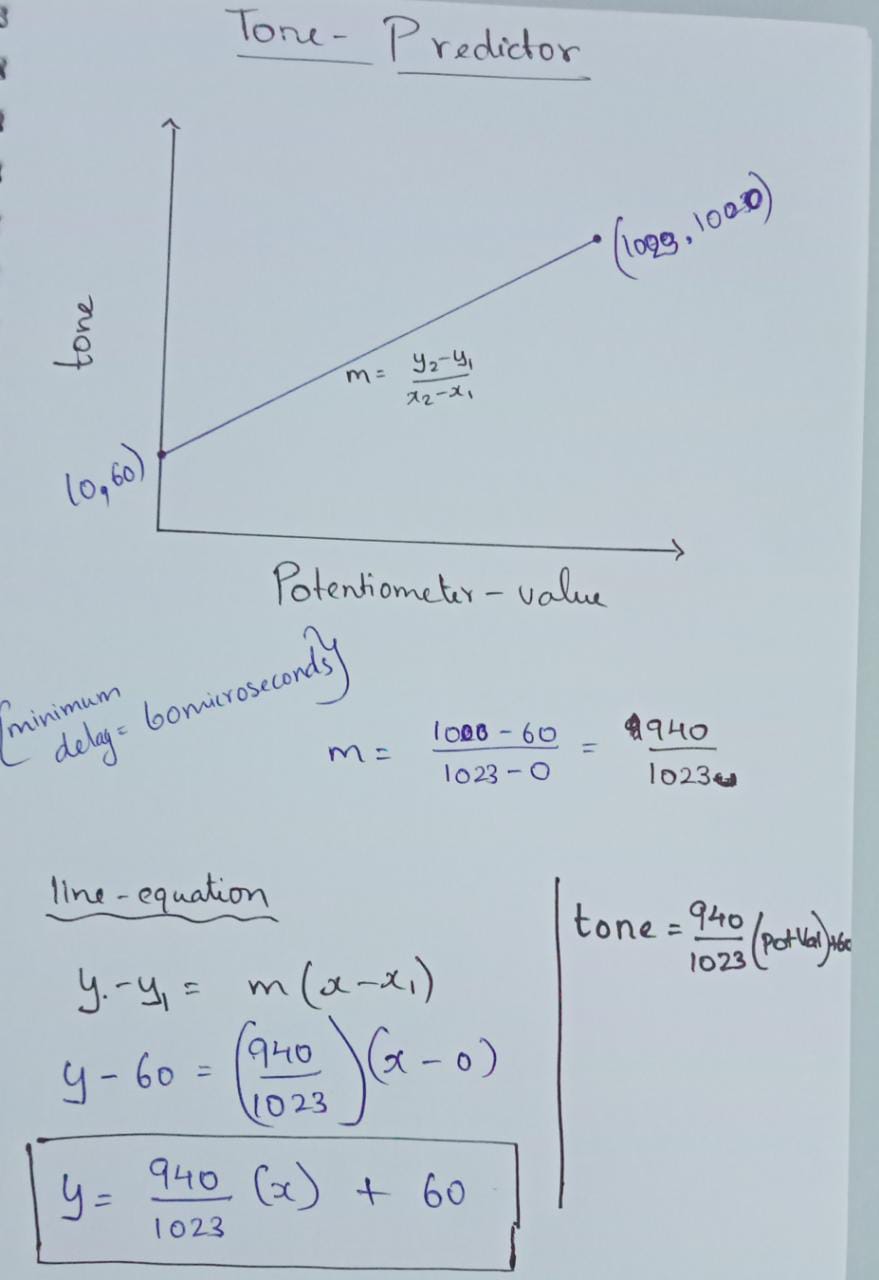 Tone- Predictor
(1023, 1000)
tone
m = y₂-y₁ / x₂-x₁
(0,60)
Potentiometer - value
{minimum
delay = 60microseconds}
m = 1000-60 / 1023-0 = 940 / 1023
line-equation
y-y₁ = m(x-x₁)
y-60 = (940/1023)(x-0)
y = 940/1023 (x) + 60
tone = 940/1023 (potVal)+60